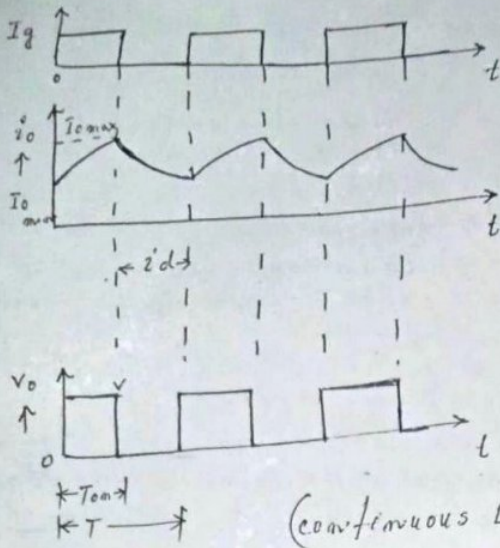 Ig
0
t
io
Io max
↑
Io
t
←id→
Vo
V
↑
0
t
Ton
T
(continuous